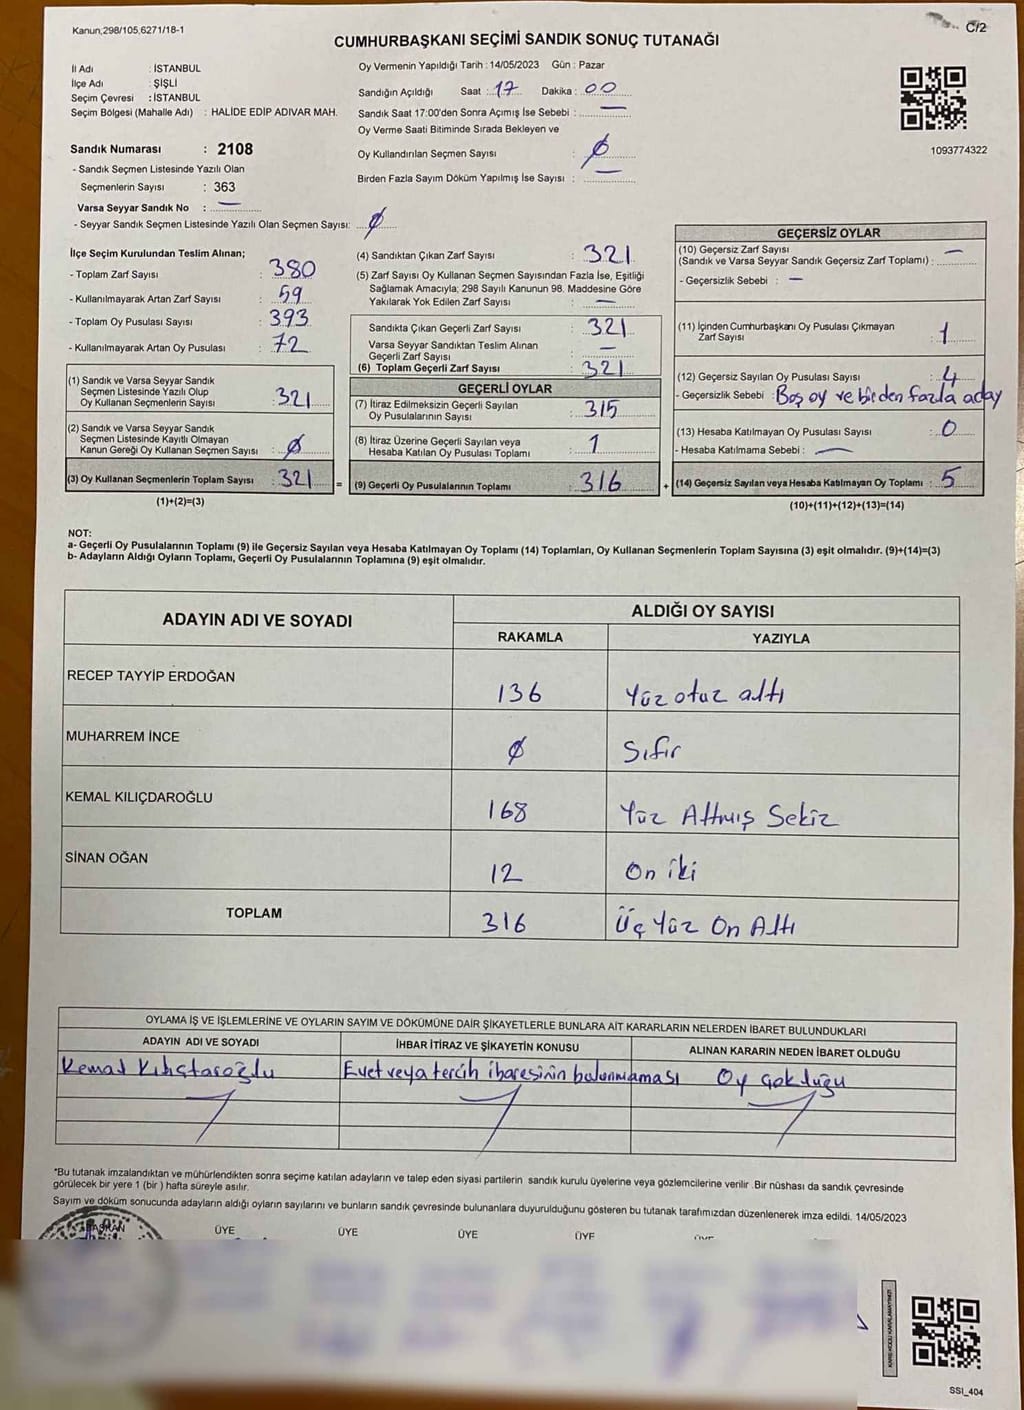 Kanun;298/105,6271/18-1
C/2
CUMHURBAŞKANI SEÇİMİ SANDIK SONUÇ TUTANAĞI
İl Adı : İSTANBUL
İlçe Adı : ŞİŞLİ
Seçim Çevresi : İSTANBUL
Seçim Bölgesi (Mahalle Adı) : HALİDE EDİP ADIVAR MAH.
Sandık Numarası : 2108
- Sandık Seçmen Listesinde Yazılı Olan
Seçmenlerin Sayısı : 363
Varsa Seyyar Sandık No : —
- Seyyar Sandık Seçmen Listesinde Yazılı Olan Seçmen Sayısı: Ø
Oy Vermenin Yapıldığı Tarih : 14/05/2023 Gün : Pazar
Sandığın Açıldığı Saat : 17 Dakika : 00
Sandık Saat 17:00'den Sonra Açımış İse Sebebi : —
Oy Verme Saati Bitiminde Sırada Bekleyen ve
Oy Kullandırılan Seçmen Sayısı : Ø
Birden Fazla Sayım Döküm Yapılmış İse Sayısı : —
1093774322
İlçe Seçim Kurulundan Teslim Alınan;
- Toplam Zarf Sayısı : 380
- Kullanılmayarak Artan Zarf Sayısı : 59
- Toplam Oy Pusulası Sayısı : 393
- Kullanılmayarak Artan Oy Pusulası : 72
(1) Sandık ve Varsa Seyyar Sandık
Seçmen Listesinde Yazılı Olup
Oy Kullanan Seçmenlerin Sayısı : 321
(2) Sandık ve Varsa Seyyar Sandık
Seçmen Listesinde Kayıtlı Olmayan
Kanun Gereği Oy Kullanan Seçmen Sayısı : Ø
(3) Oy Kullanan Seçmenlerin Toplam Sayısı : 321 =
(1)+(2)=(3)
(4) Sandıktan Çıkan Zarf Sayısı : 321
(5) Zarf Sayısı Oy Kullanan Seçmen Sayısından Fazla İse, Eşitliği
Sağlamak Amacıyla; 298 Sayılı Kanunun 98. Maddesine Göre
Yakılarak Yok Edilen Zarf Sayısı : —
Sandıkta Çıkan Geçerli Zarf Sayısı : 321
Varsa Seyyar Sandıktan Teslim Alınan
Geçerli Zarf Sayısı : —
(6) Toplam Geçerli Zarf Sayısı : 321
GEÇERLİ OYLAR
(7) İtiraz Edilmeksizin Geçerli Sayılan
Oy Pusulalarının Sayısı : 315
(8) İtiraz Üzerine Geçerli Sayılan veya
Hesaba Katılan Oy Pusulası Toplamı : 1
(9) Geçerli Oy Pusulalarının Toplamı : 316 +
GEÇERSİZ OYLAR
(10) Geçersiz Zarf Sayısı
(Sandık ve Varsa Seyyar Sandık Geçersiz Zarf Toplamı) : —
- Geçersizlik Sebebi : —
(11) İçinden Cumhurbaşkanı Oy Pusulası Çıkmayan
Zarf Sayısı : 1
(12) Geçersiz Sayılan Oy Pusulası Sayısı : 4
- Geçersizlik Sebebi : Boş oy ve birden fazla aday
(13) Hesaba Katılmayan Oy Pusulası Sayısı : 0
- Hesaba Katılmama Sebebi : —
(14) Geçersiz Sayılan veya Hesaba Katılmayan Oy Toplamı : 5
(10)+(11)+(12)+(13)=(14)
NOT:
a- Geçerli Oy Pusulalarının Toplamı (9) ile Geçersiz Sayılan veya Hesaba Katılmayan Oy Toplamı (14) Toplamları, Oy Kullanan Seçmenlerin Toplam Sayısına (3) eşit olmalıdır. (9)+(14)=(3)
b- Adayların Aldığı Oyların Toplamı, Geçerli Oy Pusulalarının Toplamına (9) eşit olmalıdır.
ADAYIN ADI VE SOYADI
ALDIĞI OY SAYISI
RAKAMLA YAZIYLA
RECEP TAYYİP ERDOĞAN 136 Yüz otuz altı
MUHARREM İNCE Ø Sıfır
KEMAL KILIÇDAROĞLU 168 Yüz Altmış Sekiz
SİNAN OĞAN 12 On iki
TOPLAM 316 Üç Yüz On Altı
OYLAMA İŞ VE İŞLEMLERİNE VE OYLARIN SAYIM VE DÖKÜMÜNE DAİR ŞİKAYETLERLE BUNLARA AİT KARARLARIN NELERDEN İBARET BULUNDUKLARI
ADAYIN ADI VE SOYADI İHBAR İTİRAZ VE ŞİKAYETİN KONUSU ALINAN KARARIN NEDEN İBARET OLDUĞU
Kemal Kılıçtaroğlu Evet veya tercih ibaresinin bulunmaması Oy çokluğu
*Bu tutanak imzalandıktan ve mühürlendikten sonra seçime katılan adayların ve talep eden siyasi partilerin sandık kurulu üyelerine veya gözlemcilerine verilir .Bir nüshası da sandık çevresinde
görülecek bir yere 1 (bir ) hafta süreyle asılır.
Sayım ve döküm sonucunda adayların aldığı oyların sayılarını ve bunların sandık çevresinde bulunanlara duyurulduğunu gösteren bu tutanak tarafımızdan düzenlenerek imza edildi. 14/05/2023
BAŞKAN ÜYE ÜYE ÜYE ÜYE ÜYE
KARE KODU KARALAMAYINIZ!
SSI_404